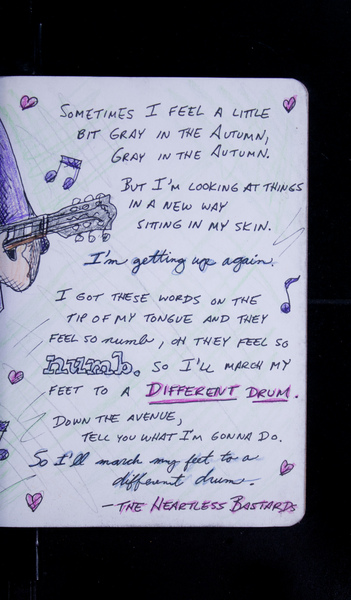 SOMETIMES I FEEL A LITTLE
BIT GRAY IN THE AUTUMN,
GRAY IN THE AUTUMN.
BUT I'M LOOKING AT THINGS
IN A NEW WAY
SITTING IN MY SKIN.
I'm getting up again.
I GOT THESE WORDS ON THE
TIP OF MY TONGUE AND THEY
FEEL SO numb, OH THEY FEEL SO
numb. SO I'LL MARCH MY
FEET TO A DIFFERENT DRUM.
DOWN THE AVENUE,
TELL YOU WHAT I'M GONNA DO.
So I'll march my feet to a
different drum.
—THE HEARTLESS BASTARDS